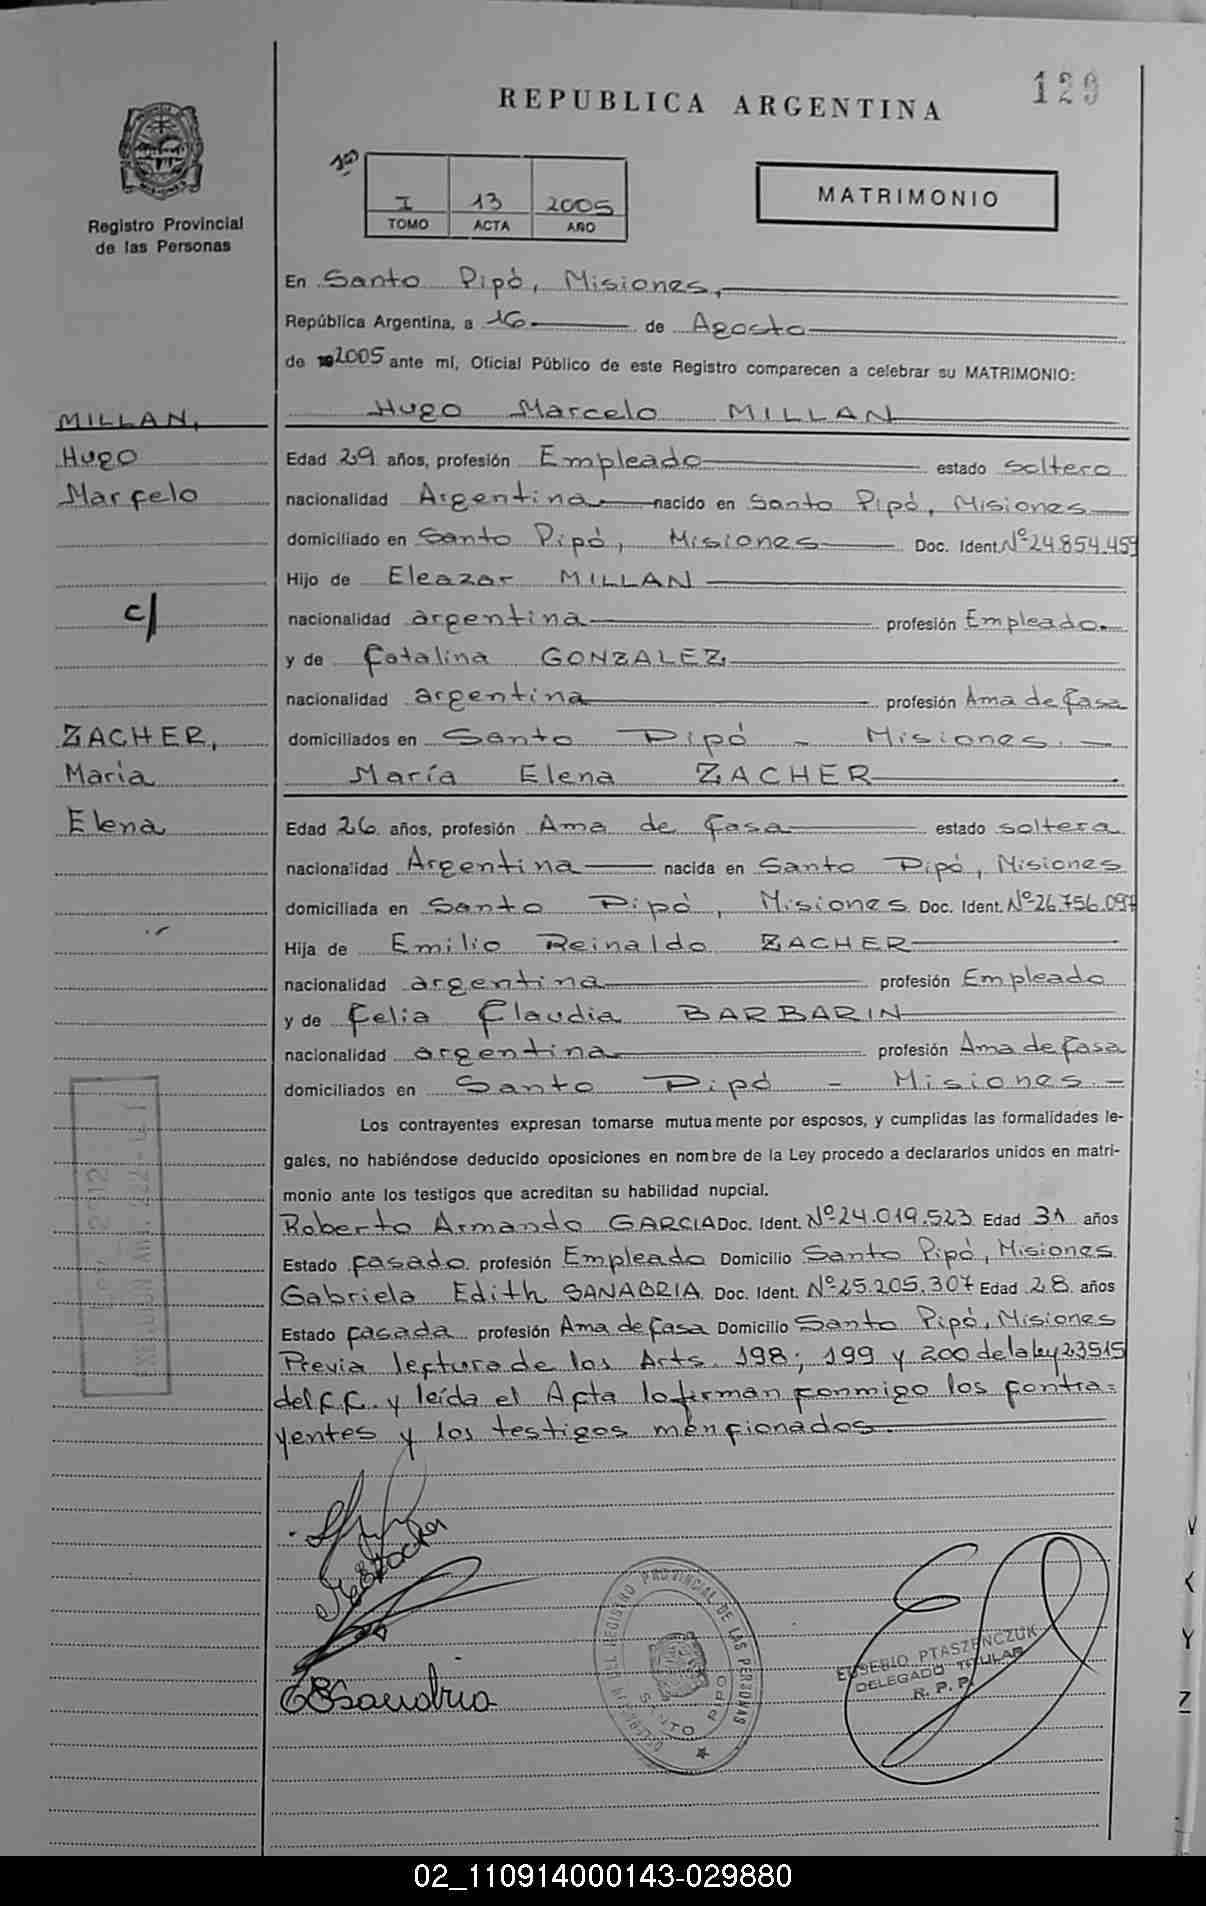 129
REPUBLICA ARGENTINA
Registro Provincial
de las Personas
I 13 2005
TOMO ACTA AÑO
MATRIMONIO
En Santo Pipó, Misiones,
República Argentina, a 16 de Agosto
de 2005 ante mí, Oficial Público de este Registro comparecen a celebrar su MATRIMONIO:
Hugo Marcelo MILLAN
MILLAN,
Hugo
Marcelo
c/
ZACHER,
María
Elena
Edad 29 años, profesión Empleado estado soltero
nacionalidad Argentina nacido en Santo Pipó, Misiones
domiciliado en Santo Pipó, Misiones Doc. Ident. Nº 24.854.459
Hijo de Eleazar MILLAN
nacionalidad argentina profesión Empleado.
y de Catalina GONZALEZ
nacionalidad argentina profesión Ama de Casa
domiciliados en Santo Pipó - Misiones. -
María Elena ZACHER
Edad 26 años, profesión Ama de Casa estado soltera
nacionalidad Argentina nacida en Santo Pipó, Misiones
domiciliada en Santo Pipó, Misiones Doc. Ident. Nº 26.756.097
Hija de Emilio Reinaldo ZACHER
nacionalidad argentina profesión Empleado
y de Celia Claudia BARBARIN
nacionalidad argentina profesión Ama de Casa
domiciliados en Santo Pipó - Misiones -
Los contrayentes expresan tomarse mutuamente por esposos, y cumplidas las formalidades le-
gales, no habiéndose deducido oposiciones en nombre de la Ley procedo a declararlos unidos en matri-
monio ante los testigos que acreditan su habilidad nupcial.
Roberto Armando GARCIA Doc. Ident. Nº 24.019.523 Edad 31 años
Estado Casado profesión Empleado Domicilio Santo Pipó, Misiones
Gabriela Edith SANABRIA Doc. Ident. Nº 25.205.307 Edad 28 años
Estado Casada profesión Ama de Casa Domicilio Santo Pipó, Misiones
Previa lectura de los Arts. 198; 199 y 200 de la ley 23515
del C.C. y leída el Acta la firman conmigo los contra=
yentes y los testigos mencionados.
MEZacher
GESanabria
DELEGACION DEL REGISTRO PROVINCIAL DE LAS PERSONAS
SANTO PIPO
EUSEBIO PTASZENCZUK
DELEGADO TITULAR
R. P. P.
V
K
Y
Z
02_110914000143-029880